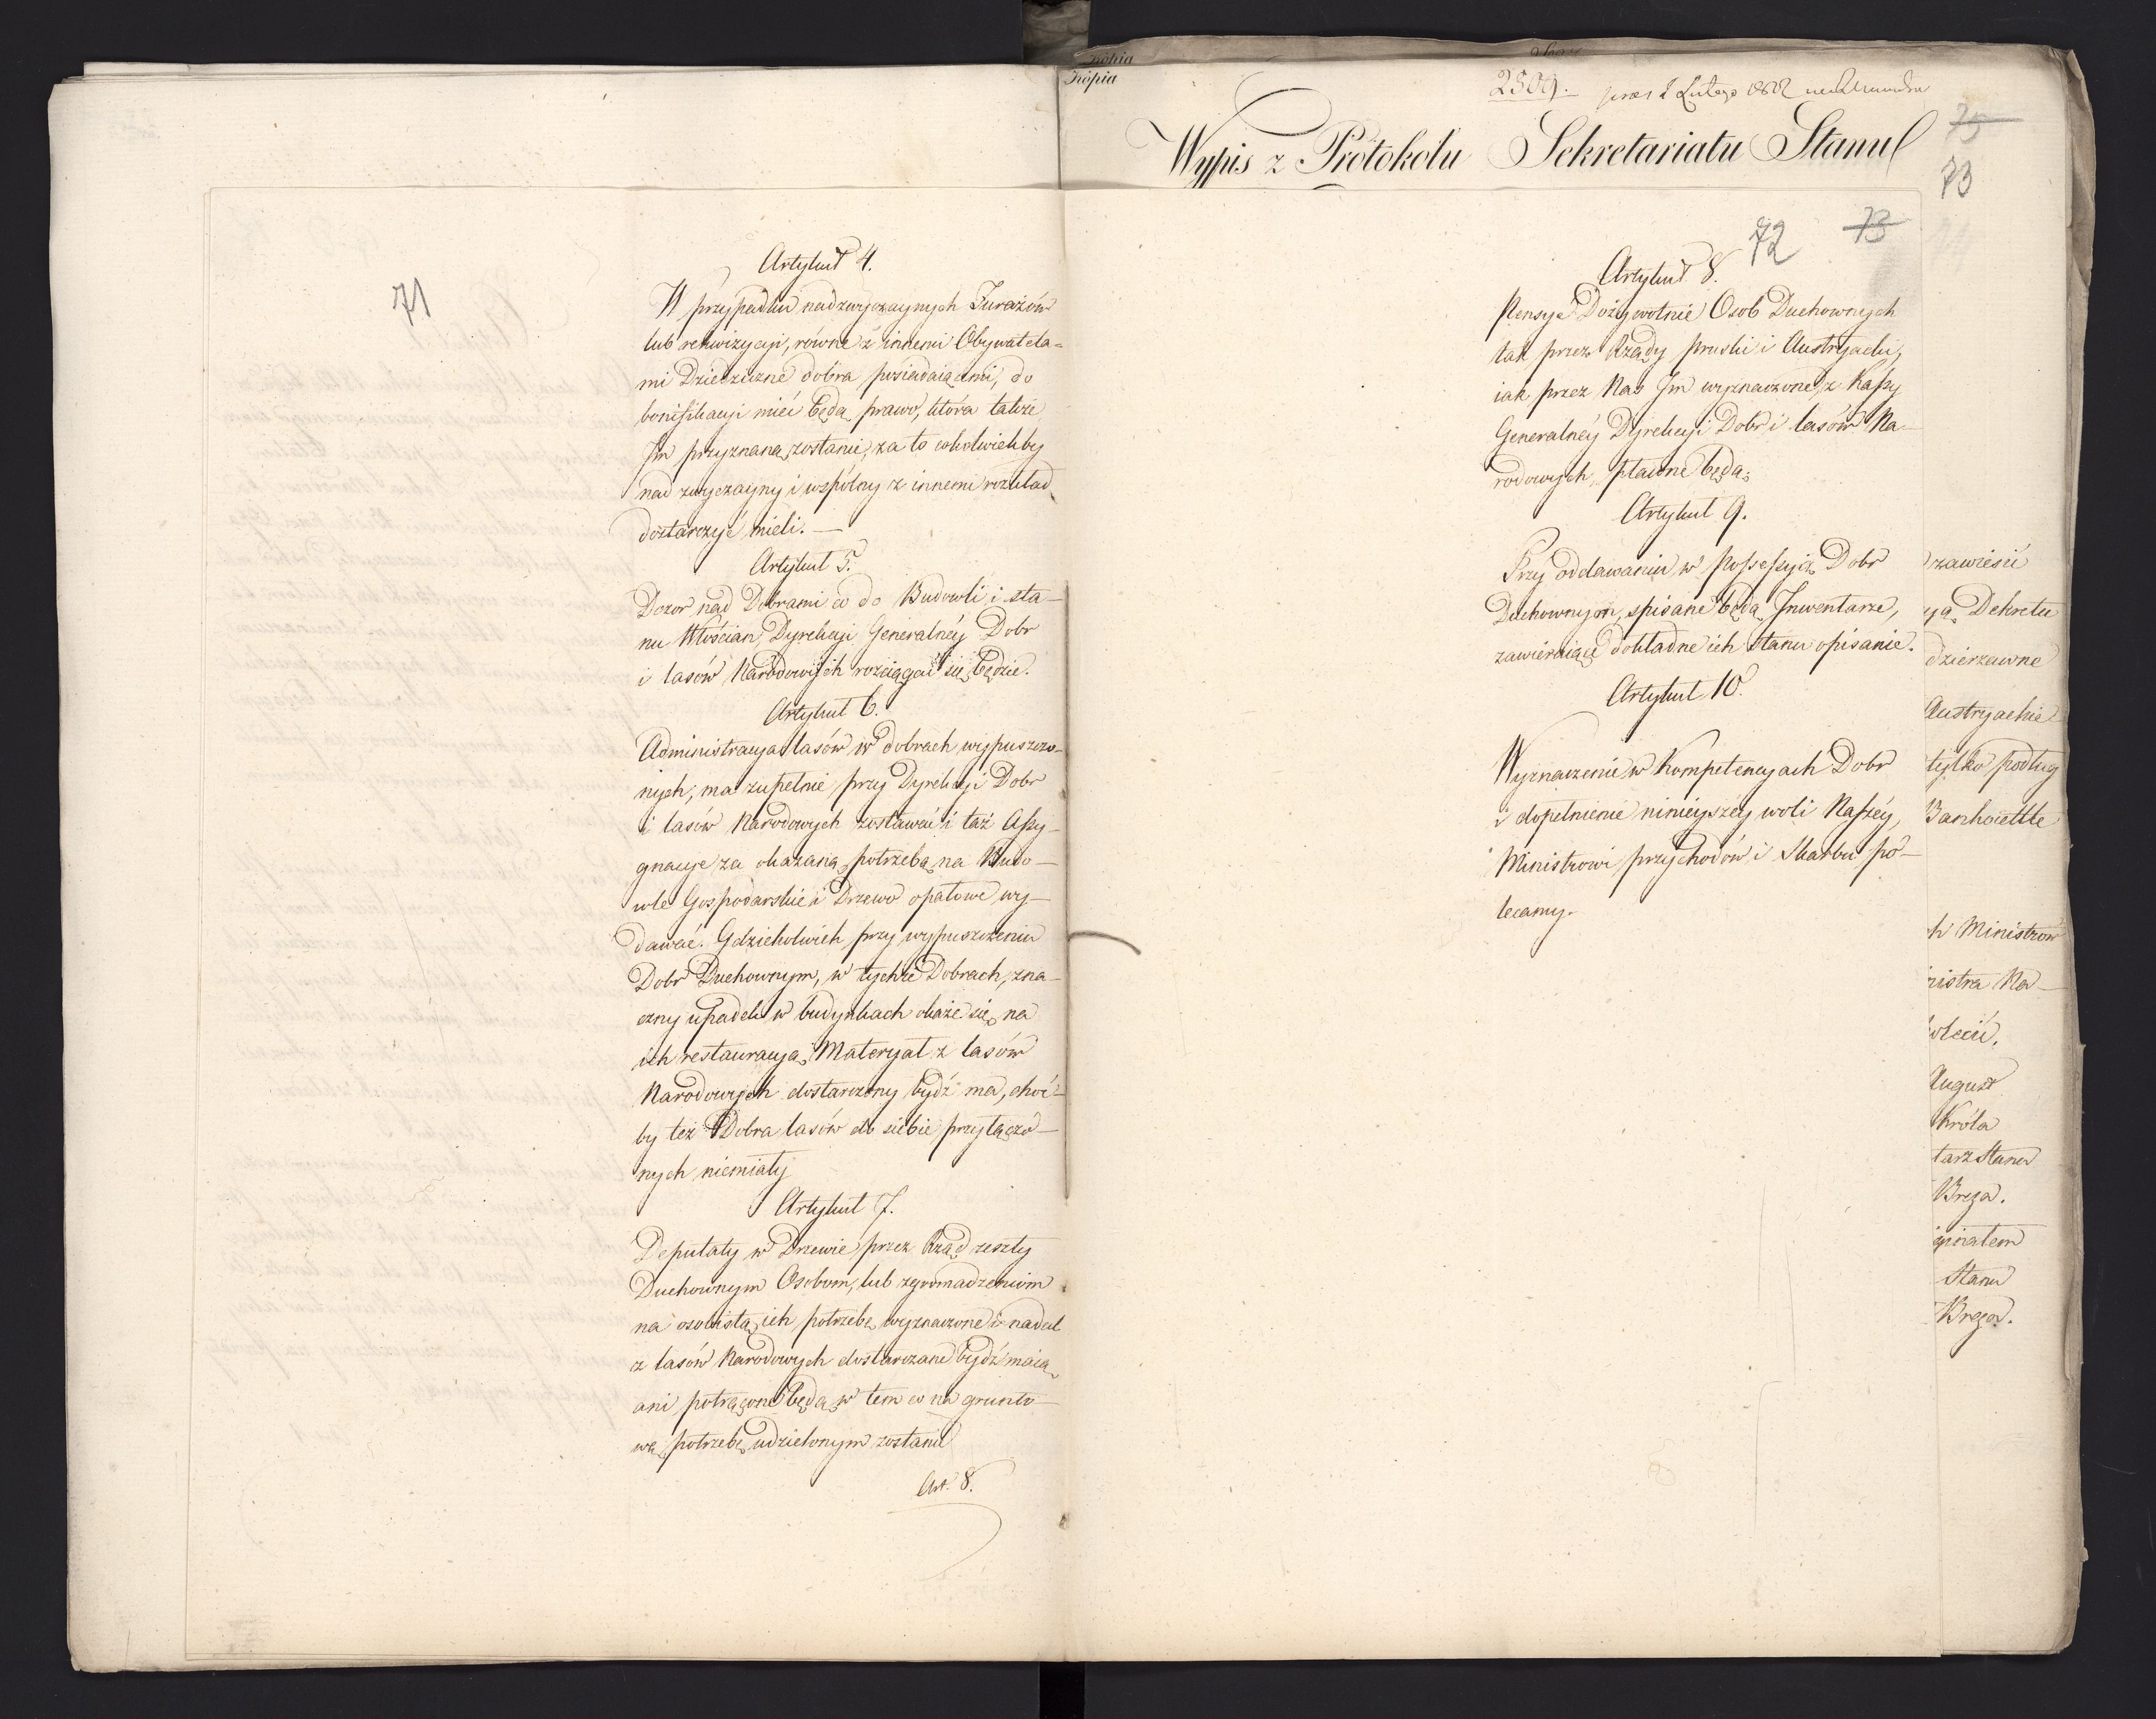 71
Artykuł 4.
W przypadku nadzwyczaynych Furażów
lub rekwizycyi, równe z innemi Obywatela-
mi Dziedziczne dobra posiadaiącemi, do
bonifikacyi mieć będą prawo, która także
Im przyznana zostanie, za to cokolwiekby
nad zwyczayny i wspólny z innemi rozkład
dostarczyć mieli. —
Artykuł 5.
Dozor nad Dobrami co do Budowli i sta-
nu Włościan, Dyrekcyi Generalnéy Dobr
i lasów Narodowych rozciągać się będzie.
Artykuł 6.
Administracya lasów w dobrach wypuszczo-
nych, ma zupełnie przy Dyrekcyi Dobr
i lasów Narodowych zostawać i taż Assy-
gnacye za okazaną potrzebą na Budo-
wle Gospodarskie i Drzewo opałowe wy-
dawać. Gdziekolwiek przy wypuszczeniu
Dobr Duchownym, w tychże Dobrach, zna-
czny upadek w budynkach okaże się, na
ich restauracyą Materyał z lasów
Narodowych dostarczony bydź ma, choć-
by też Dobra lasów do siebie przyłączo-
nych niemiały
Artykuł 7.
Deputaty w Drzewie przez Rząd zeszły
Duchownym Osobom, lub zgromadzeniom
na osobistą ich potrzebę wyznaczone i nadal
z lasów Narodowych dostarczane bydź maią
ani potrącone będą w tem co na grunto-
wą potrzebę udzielonym zostanie
Art. 8.
Kopia
Kopia
2509. 
Wypis z Protokołu Sekretariatu Stanu
75
73
72 73
Artykuł 8.
Pensye Dożywotnie Osob Duchownych
tak przez Rządy pruski i Austryacki,
iak przez Nas Im wyznaczone, z Kassy
Generalnéy Dyrekcyi Dobr i lasów Na-
rodowych, płacone będą.
Artykuł 9.
Przy oddawaniu w Possessyią Dobr
Duchownym, spisane będą Inwentarze,
zawieraiące dokładne ich Stanu opisanie.
Artykuł 10.
Wyznaczenie w Kompetencyach Dobr
i dopełnienie ninieyszéy woli Naszéy,
Ministrowi przychodów i Skarbu po-
lecamy.
zawiesić
Dekretu
dzierzawne
Austryackie
tylko podług
Ministrow
Na-
August
Króla
Stanu
Breza.
Stanu
Breza.